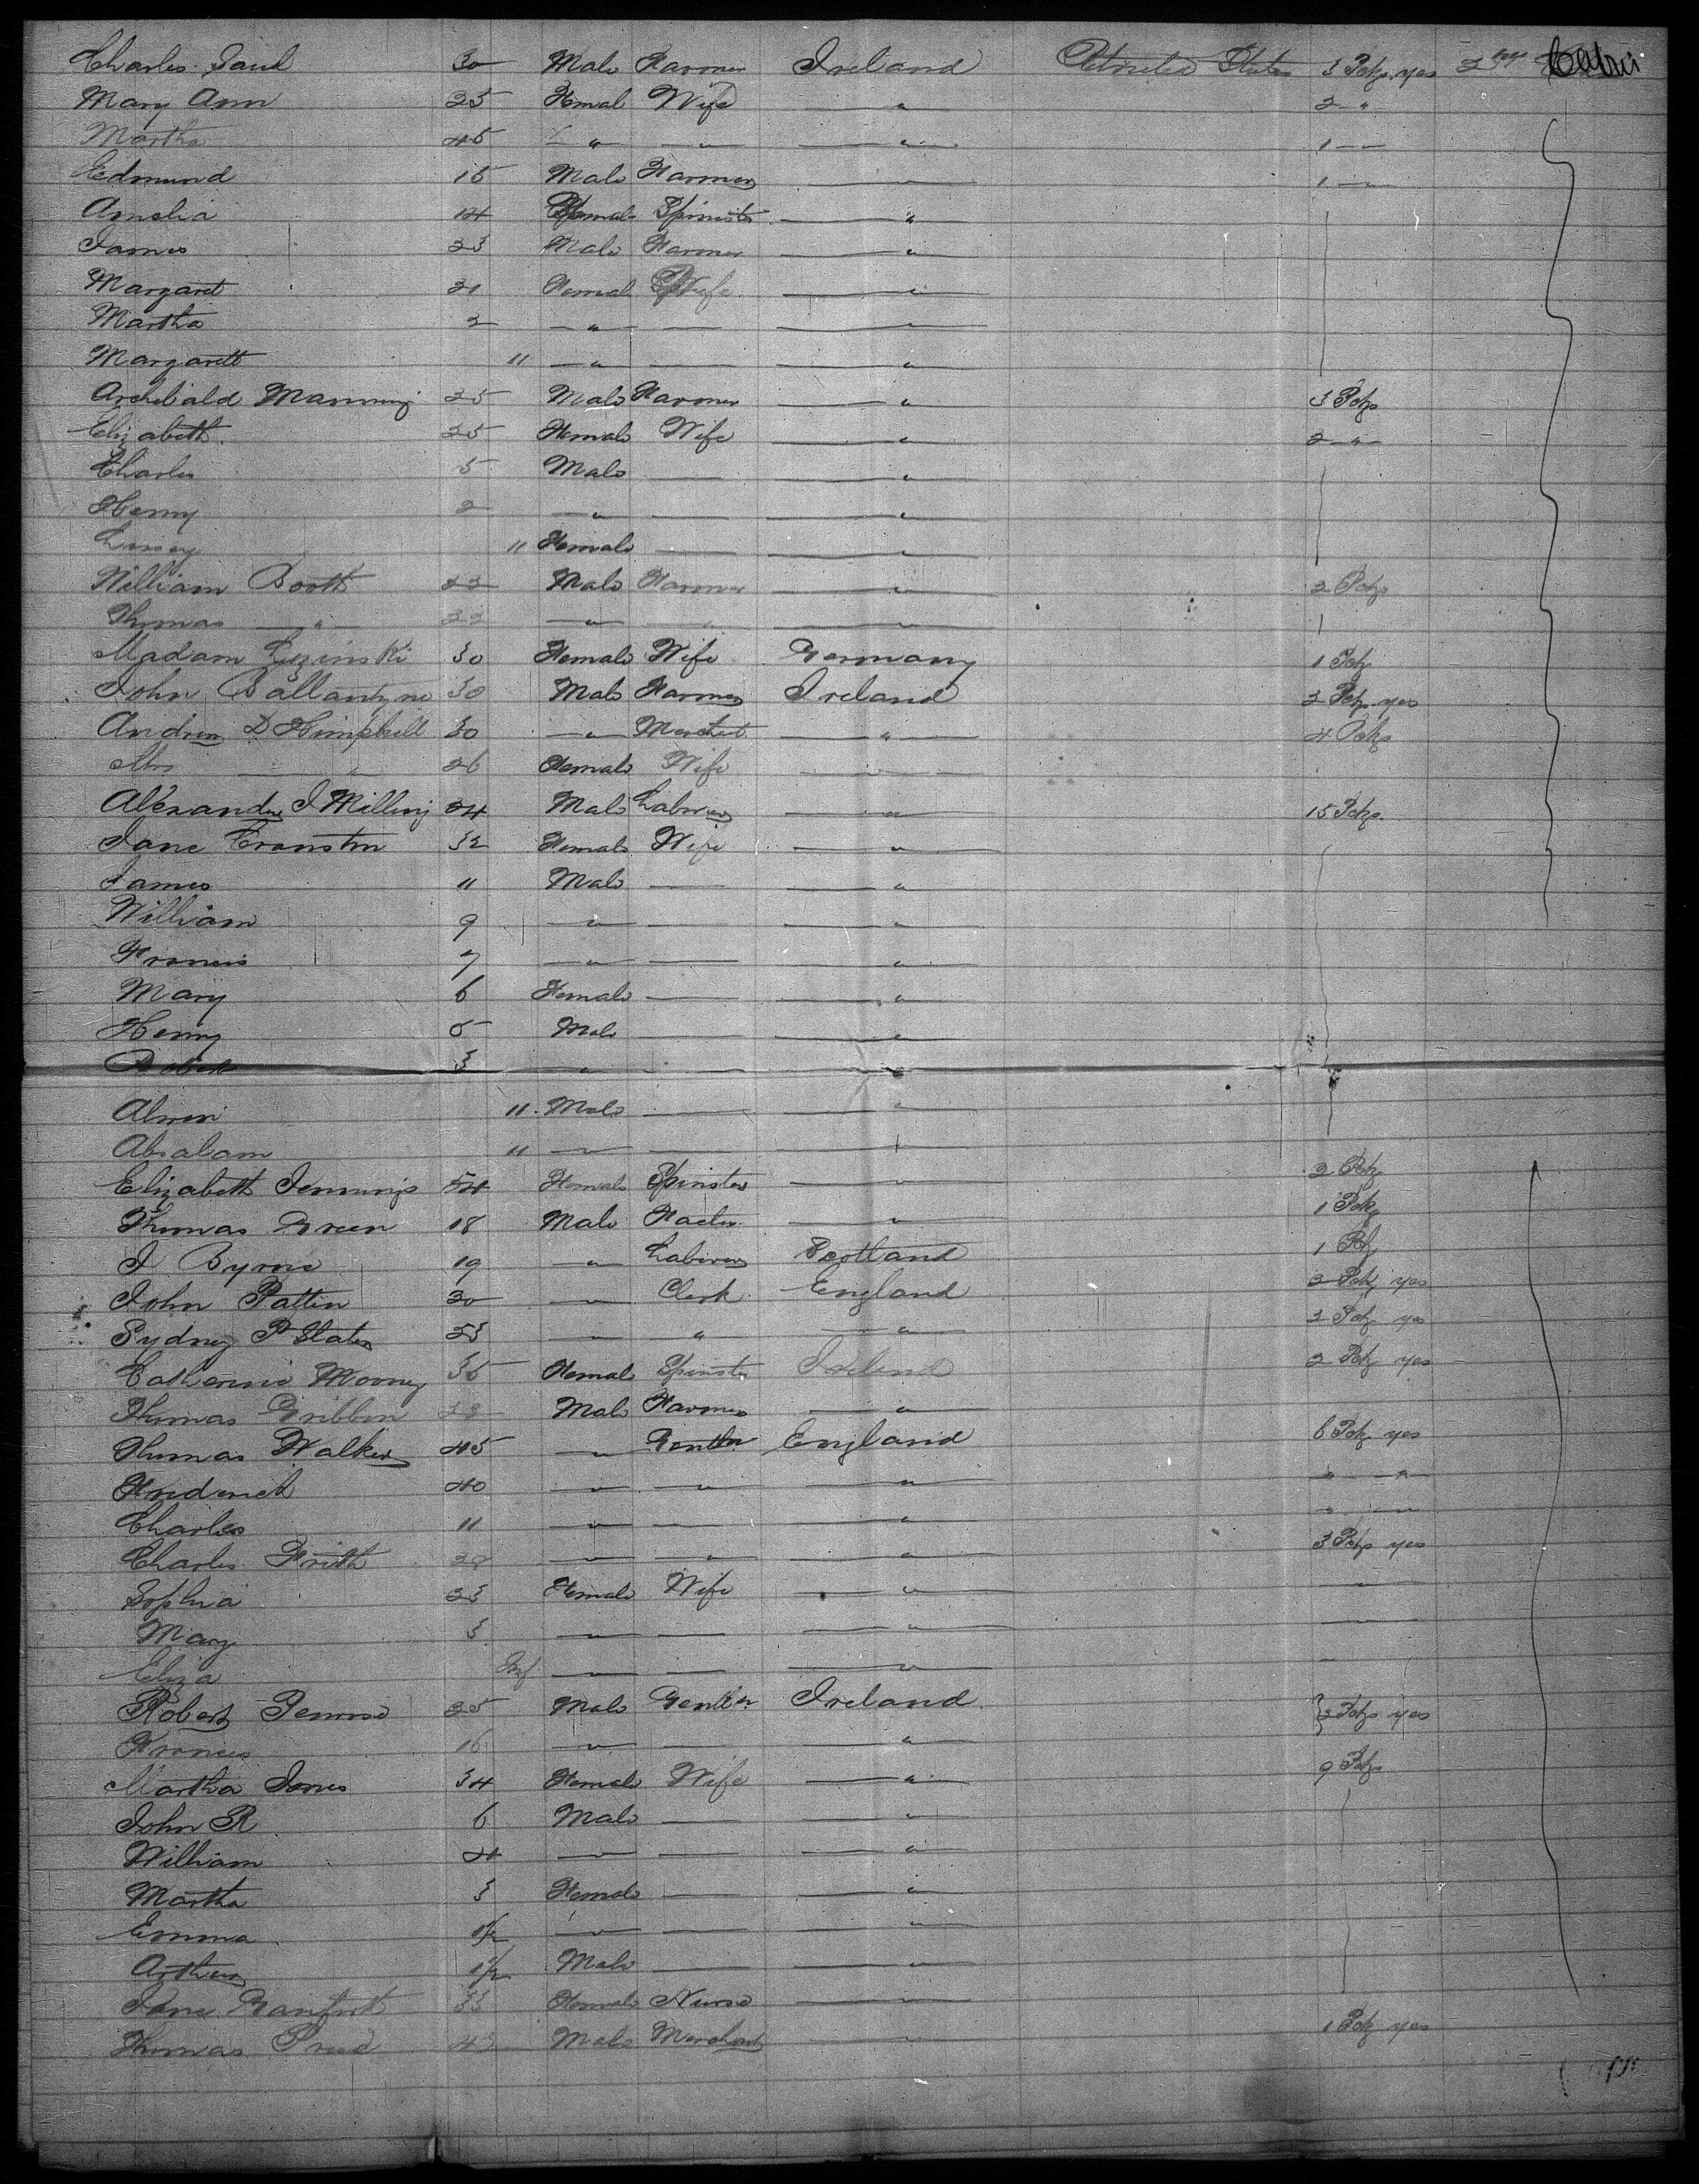 Charles 30 Male Farmer Ireland United States 3 Pckgs yes 2nd Cabin
Mary Ann 25 Femal Wife " 2 "
Martha 45 " " " 1 "
Edmund 15 Male Farmer " 1 "
Amelia 14 Femal Spinster "
James 23 Male Farmer "
Margaret 21 Femal Wife "
Martha 2 " "
Margarett 11 " "
Archibald Manning 25 Male Farmer " 3 Pckgs
Elizabeth 25 Female Wife " 2 "
Charles 5 Male "
Henry 2 " "
11 Female "
William Booth 22 Male Farmer " 2 Pckgs
Thomas " 22 " " " 1
Madam 30 Female Wife Germany 1 Pckg
John Ballantyne 30 Male Farmer Ireland 2 Pckgs yes
Andrew D Himphill 30 " Mercht " 4 Pckgs
Mrs " 26 Female Wife "
Alexander J Milling 24 Male Laborer " 15 Pckgs
Jane Cranston 32 Female Wife "
James 11 Male "
William 9 " "
Francis 7 " "
Mary 6 Female "
Henry 5 Male "
Robert 3 " "
11 Male "
Absalam 11 " "
Elizabeth Jennings 54 Female Spinster " 2 Pckg
Thomas Green 18 Male " 1 Pckg
J Byrne 19 " Laborer Scotland 1 Pckg
John Patten 30 " Clerk England 2 Pckg yes
Sydney P Slater 23 " " " 2 Pckg yes
Catherine Mooney 35 Female Spinster Ireland 2 Pckg yes
Thomas Gribbin 28 Male Farmer "
Thomas Walker 45 " Gentln England 6 Pckg yes
Frederick 40 " " " " "
Charles 11 " " " "
Charles Frith 28 " " " 3 Pckgs yes
Sophia 23 Female Wife " "
Mary 3 " "
Eliza Inf " "
Robert Penrose 25 Male Gentln Ireland 2 Pckgs yes
Francis 16 " "
Martha Jones 34 Female Wife " 9 Pckgs
John R 6 Male "
William 4 " "
Martha 3 Female "
Emma 1½ " "
Arthur 1½ Male "
Jane 33 Female Nurse "
Thomas 43 Male Merchant " 1 Pckg yes